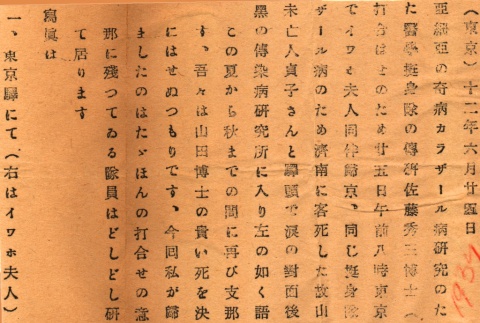 （東京）十二年六月廿五日
亞細亞の奇病カラザール病研究のた
た醫學挺身隊の傳研佐藤秀三博士（
打合はせのため廿五日午前八時東京
でイワホ夫人同伴歸京、同じ挺身隊
ザール病のため濟南に客死した故山
未亡人貞子さんと驛頭で淚の對面後
黑の傳染病研究所に入り左の如く語
この夏から秋までの間に再び支那
す、吾々は山田博士の貴い死を決
にはせぬつもりです、今回私が歸
ましたのはたゞほんの打合せの意
那に殘つてゐる隊員はどしどし研
て居ります
寫眞は
一、東京驛にて（右はイワホ夫人）
1937